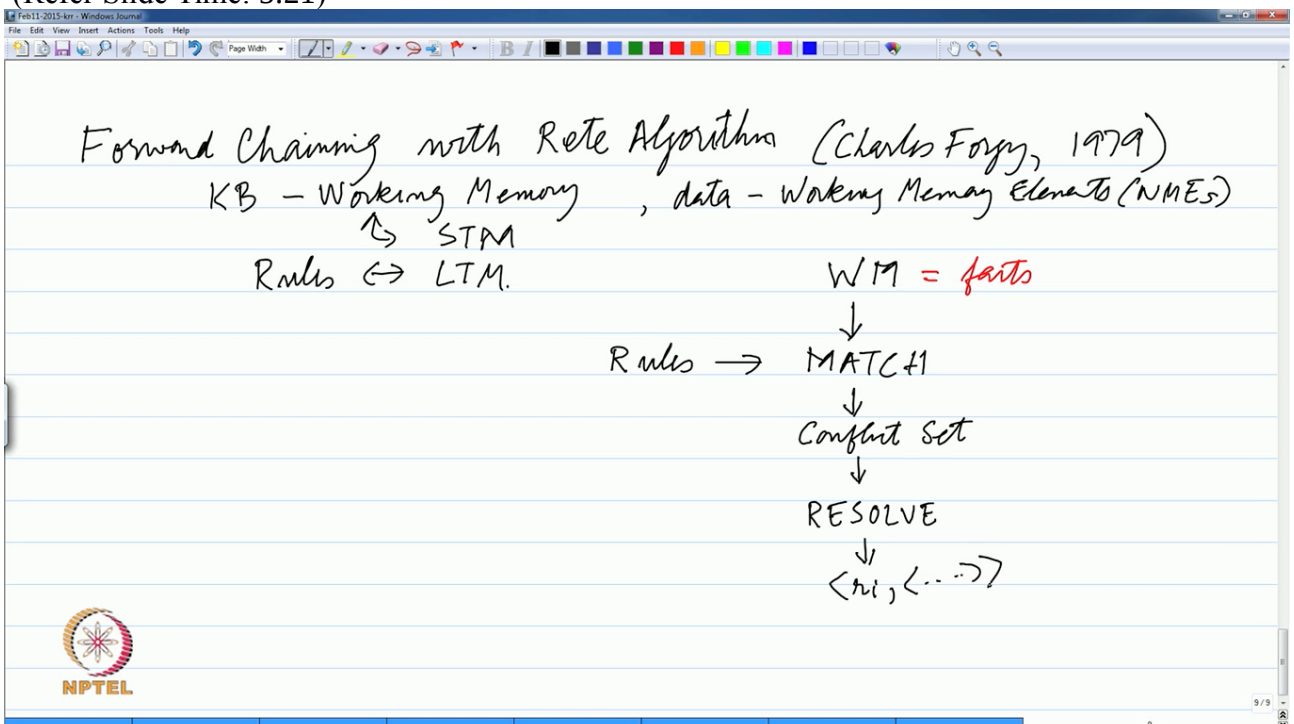 (Refer Slide Time: 3:21)
Feb11-2015-krr - Windows Journal
File Edit View Insert Actions Tools Help
Page Width
B I
Forward Chaining with Rete Algorithm (Charles Forgy, 1979)
KB - Working Memory , data - Working Memory Elements (WMEs)
↔ STM
Rules ↔ LTM.
WM = facts
↓
Rules → MATCH
↓
Conflict Set
↓
RESOLVE
↓
<ri, <.....>>
NPTEL
9/9